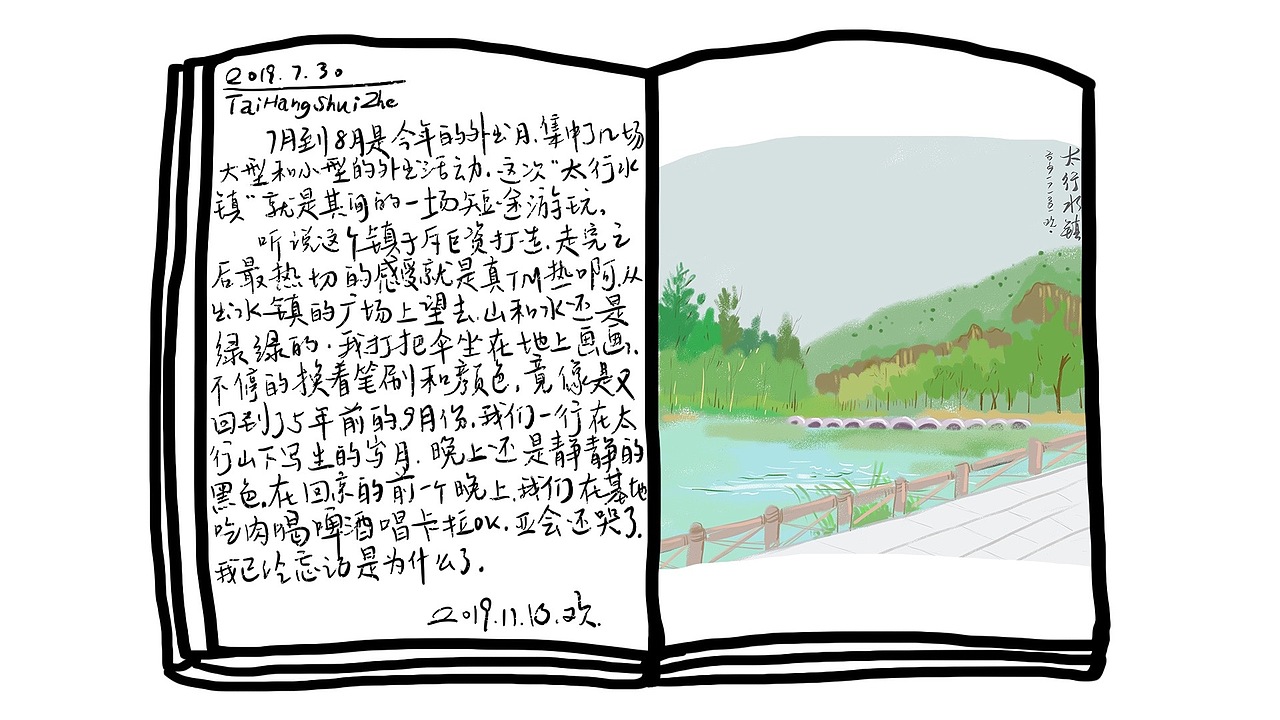 2019.7.30
TaiHangShuiZhe
7月到8月是今年的外出月.集中了几场
大型和小型的外出活动.这次“太行水
镇”就是其间的一场短途游玩.
听说这个镇于斥巨资打造.走完之
后最热切的感受就是真TM热啊.从
出水镇的广场上望去.山和水还是
绿绿的.我打把伞坐在地上画画.
不停的换着笔刷和颜色,竟像是又
回到了5年前的9月份.我们一行在太
行山下写生的岁月.晚上还是静静的
黑色.在回京的前一个晚上.我们在基地
吃肉喝啤酒唱卡拉OK.亚会还哭了.
我已经忘记是为什么了.
2019.11.13.欢.
太行水镇